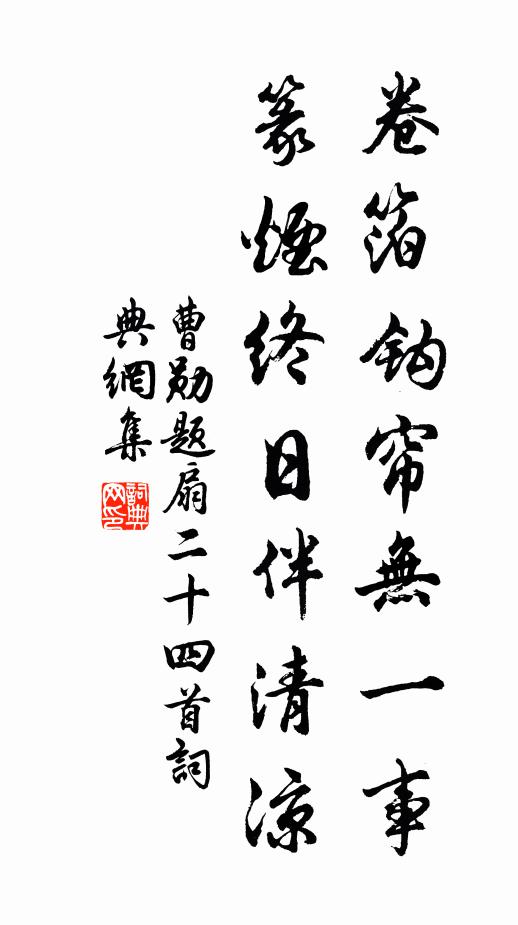 卷箔鈎帘無一事
篆煙終日伴清涼
曹勛題扇二十四首詞
典網集
詞典
网印